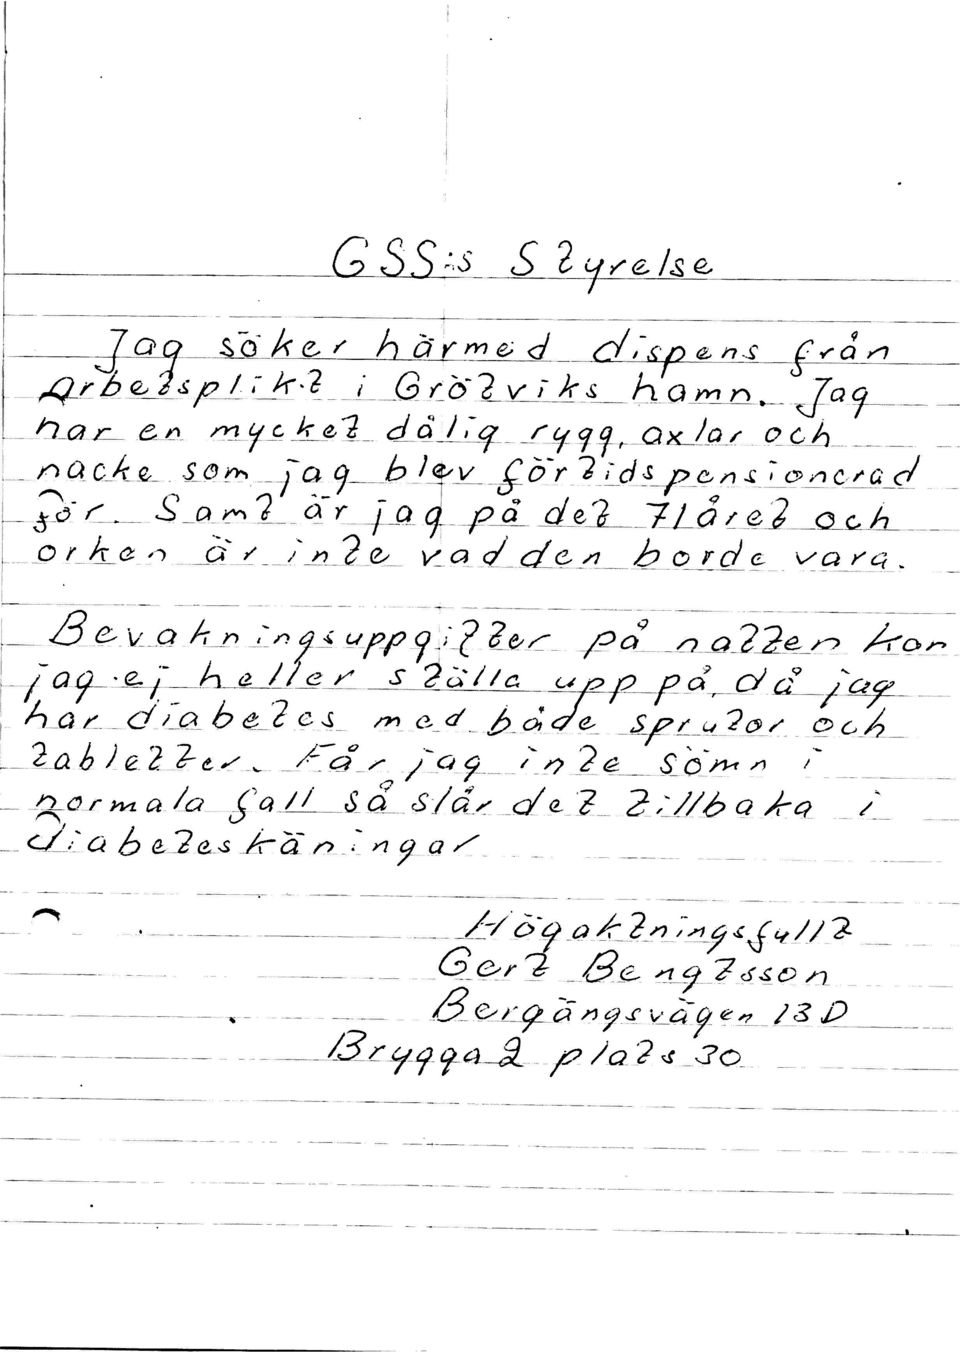 GSS:s Styrelse
Jag söker härmed dispens från
Arbetsplikt i Grötviks hamn. Jag
har en mycket dålig rygg, axlar och
nacke som jag blev förtidspensionerad
för. Samt är jag på det 71året och
orken är inte vad den borde vara.
Bevakningsuppgifter på natten kan
jag ej heller ställa upp på, då jag
har diabetes med både sprutor och
tabletter. Får jag inte sömn i
normala fall så slår det tillbaka i
diabeteskäningar
Högaktningsfullt
Gert Bengtsson
Bergängsvägen 13D
Brygga 2 plats 30